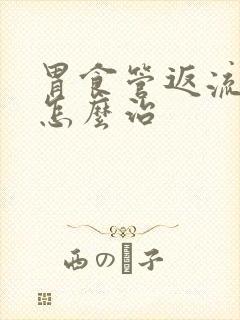 胃食管返流
怎麼治
西の子